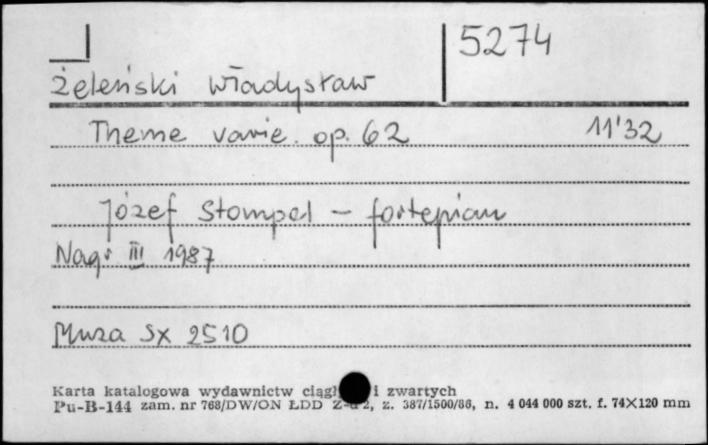 5274
Żeleński Władysław
Theme varie. op. 62 11'32
Józef Stompel – fortepian
Nagr III 1987
Muza SX 2510
Karta katalogowa wydawnictw ciągł i zwartych
Pu-B-144 zam. nr 768/DW/ON ŁDD z. 387/1500/86, n. 4 044 000 szt. f. 74×120 mm